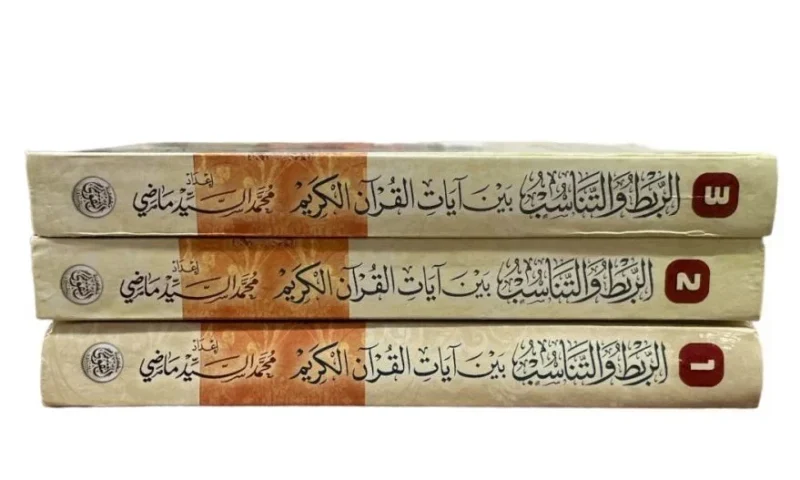 3 الرَّبْطُ وَالتَّنَاسُبُ بَيْنَ آيَاتِ الْقُرْآنِ الْكَرِيْمِ إِعْدَادُ مُحَمَّد السَّيِّد مَاضِي
2 الرَّبْطُ وَالتَّنَاسُبُ بَيْنَ آيَاتِ الْقُرْآنِ الْكَرِيْمِ إِعْدَادُ مُحَمَّد السَّيِّد مَاضِي
1 الرَّبْطُ وَالتَّنَاسُبُ بَيْنَ آيَاتِ الْقُرْآنِ الْكَرِيْمِ إِعْدَادُ مُحَمَّد السَّيِّد مَاضِي